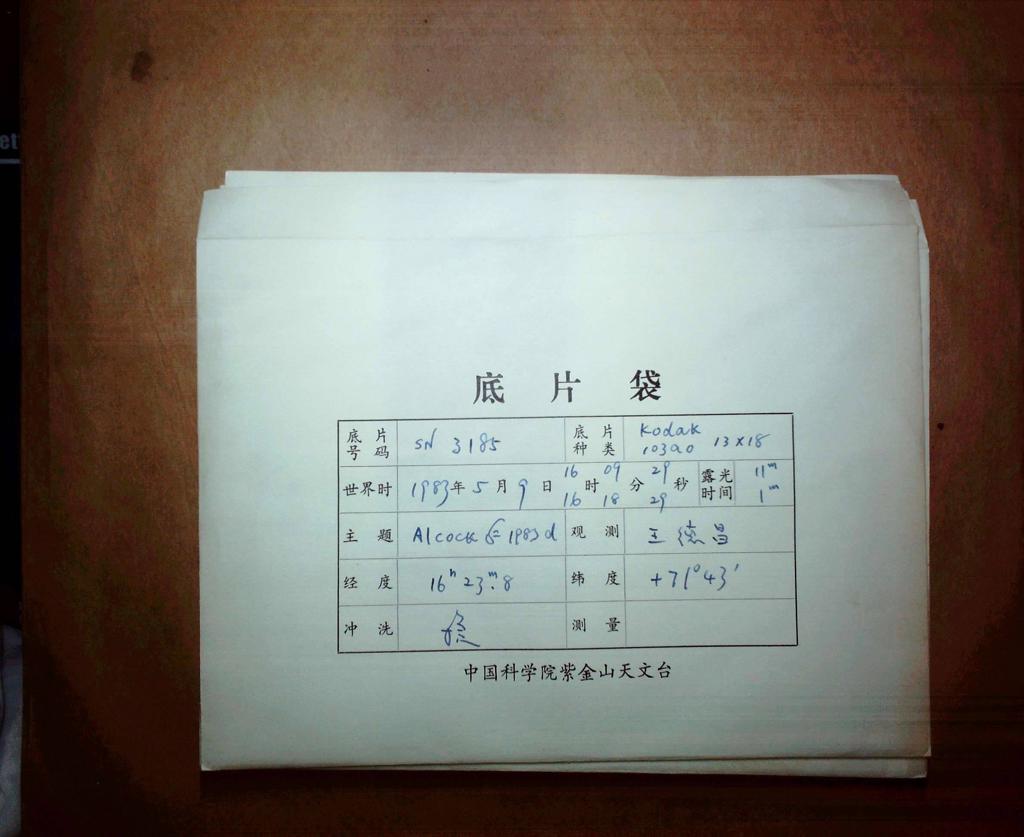 et
底片袋
底片号码 SN 3185 底片种类 Kodak 103aO 13×18
世界时 1983年5月9日 16时09分29秒 露光时间 11ᵐ
16 18 29 1ᵐ
主题 Alcock 1983d 观测 王德昌
经度 16ʰ23ᵐ.8 纬度 +71°43′
冲洗 测量
中国科学院紫金山天文台